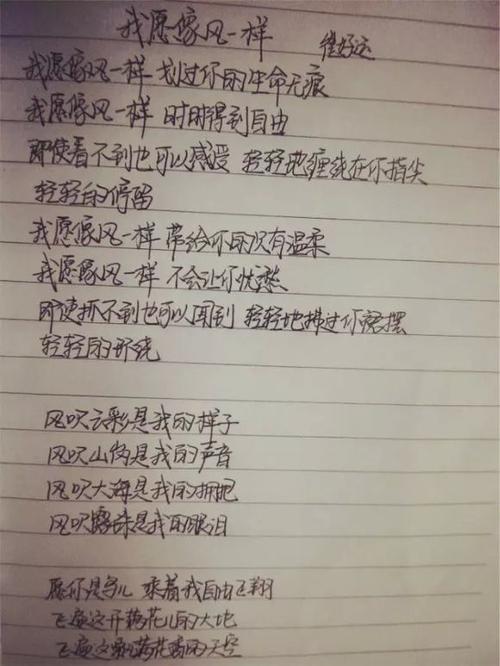 我愿像风一样 维好运
我愿像风一样 划过你的生命无痕
我愿像风一样 时时得到自由
即使看不到也可以感受 轻轻地缠绕在你指尖
轻轻的停留
我愿像风一样 带给你的只有温柔
我愿像风一样 不会让你忧愁
即使抓不到也可以闻到 轻轻地拂过你裙摆
轻轻的环绕
风吹云彩是我的样子
风吹山岗是我的声音
风吹大海是我的拥抱
风吹露珠是我的眼泪
愿你是鸟儿 乘着我自由飞翔
飞遍这开满花儿的大地
飞遍这飘满花香的天空